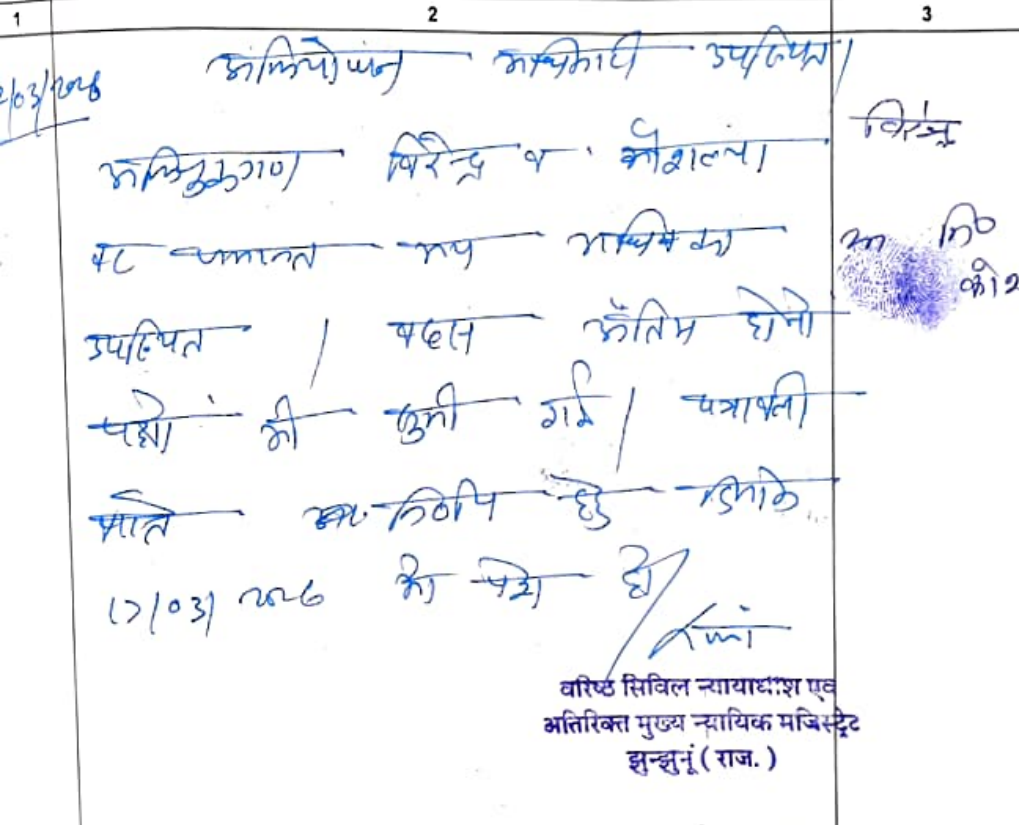 1 2 3
/03/2026 अभियोजन अधिकारी उपस्थित।
विरेन्द्र
अभियुक्तगण विरेन्द्र व कौशल्या
नि०
जमानत मय अधिवक्ता
उपस्थित । बहस अंतिम दोनो
पक्षो की सुनी गई। पत्रावली
वास्ते निर्णय हेतु दिनांक
17/03/2026 को पेश हो
वरिष्ठ सिविल न्यायाधीश एवं
अतिरिक्त मुख्य न्यायिक मजिस्ट्रेट
झुन्झुनूं (राज.)